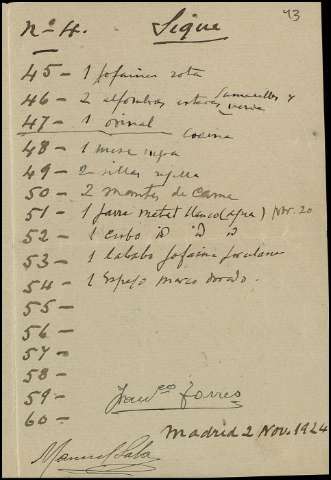 93
Nº 4. Sigue
45 - 1 jofaina rota
46 - 2 alfombras esteras 1 amarilla y 1 verde
47 - 1 orinal
cocina
48 - 1 mesa negra
49 - 2 sillas rejilla
50 - 2 mantas de cama
51 - 1 jarra metal blanco (agua) Nov. 20
52 - 1 cubo iD iD iD
53 - 1 lababo jofaina porcelana
54 - 1 Espejo marco dorado.
55 -
56 -
57 -
58 -
59 - Franco Torres
60 -
Madrid 2 Nov. 1924
Manuel